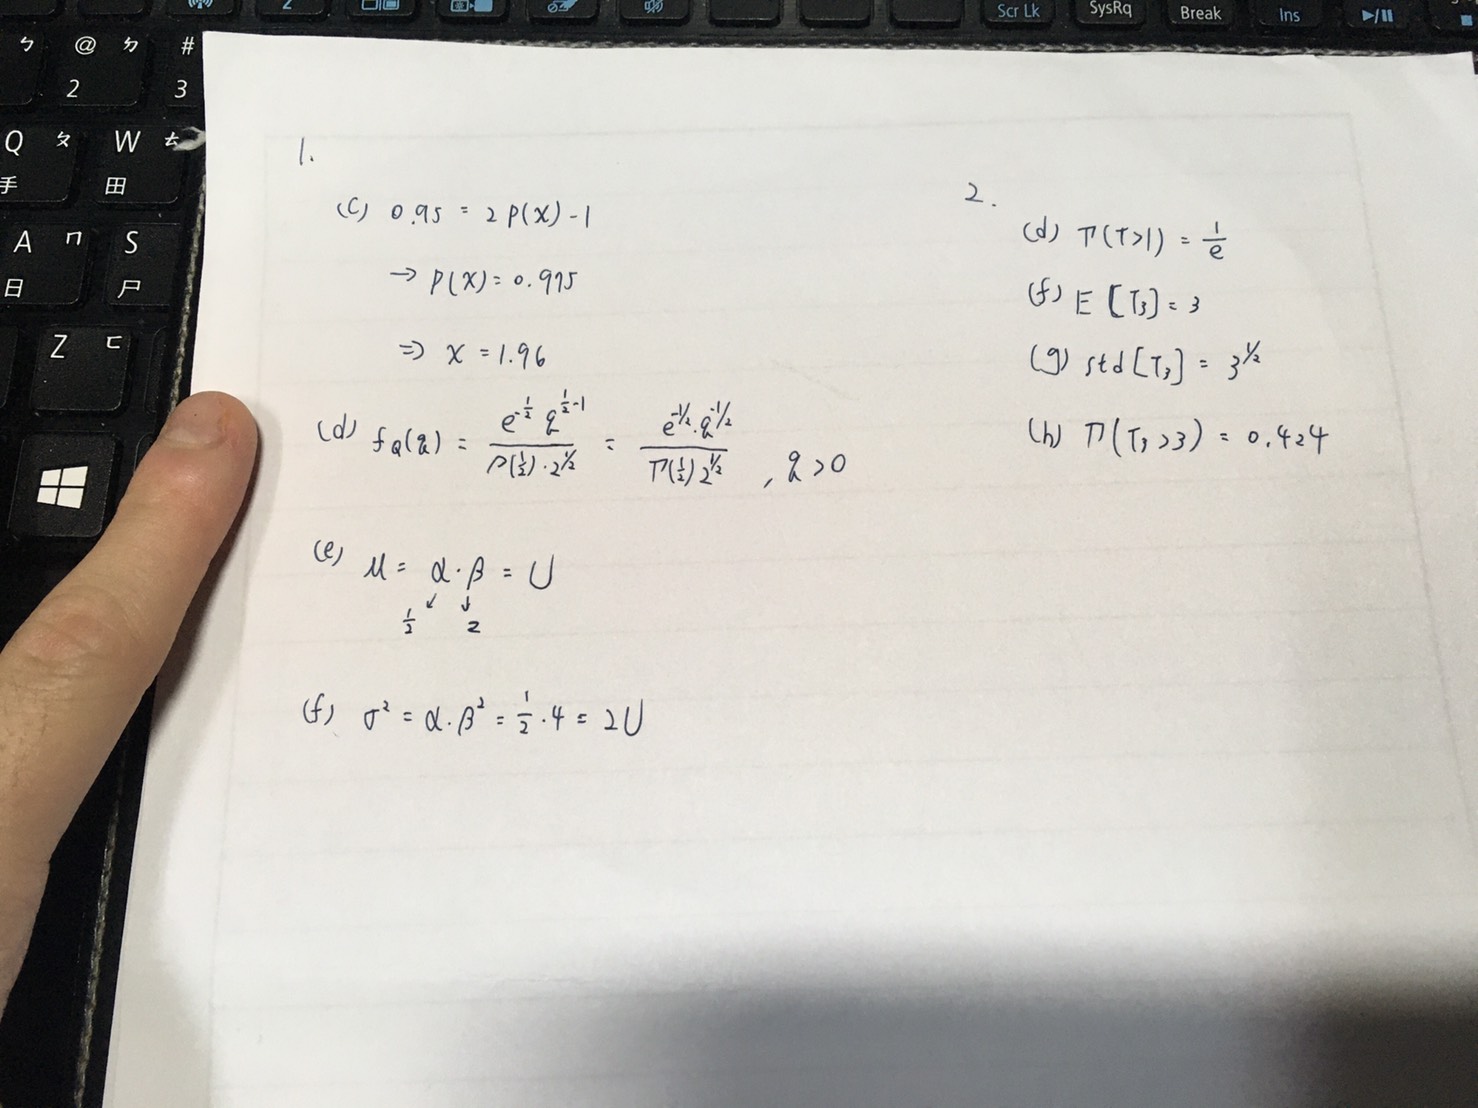 Scr Lk
SysRq
Break
Ins
ㄅ
@ ㄉ
2
#
3
Q ㄆ
手
W ㄊ
田
A ㄇ
日
S
尸
Z ㄈ
1.
(c) 0.95 = 2P(X)-1
→ P(X)=0.975
⇒ X = 1.96
(d) fQ(q) = e^-1/2 q^1/2-1 / Γ(1/2)·2^1/2 = e^-1/2·q^-1/2 / Γ(1/2)2^1/2 , q>0
(e) μ = α·β = U
1/2 2
(f) σ² = α·β² = 1/2·4 = 2U
2.
(d) P(T>1) = 1/e
(f) E[T3] = 3
(g) std[T3] = 3^1/2
(h) P(T3>3) = 0.424